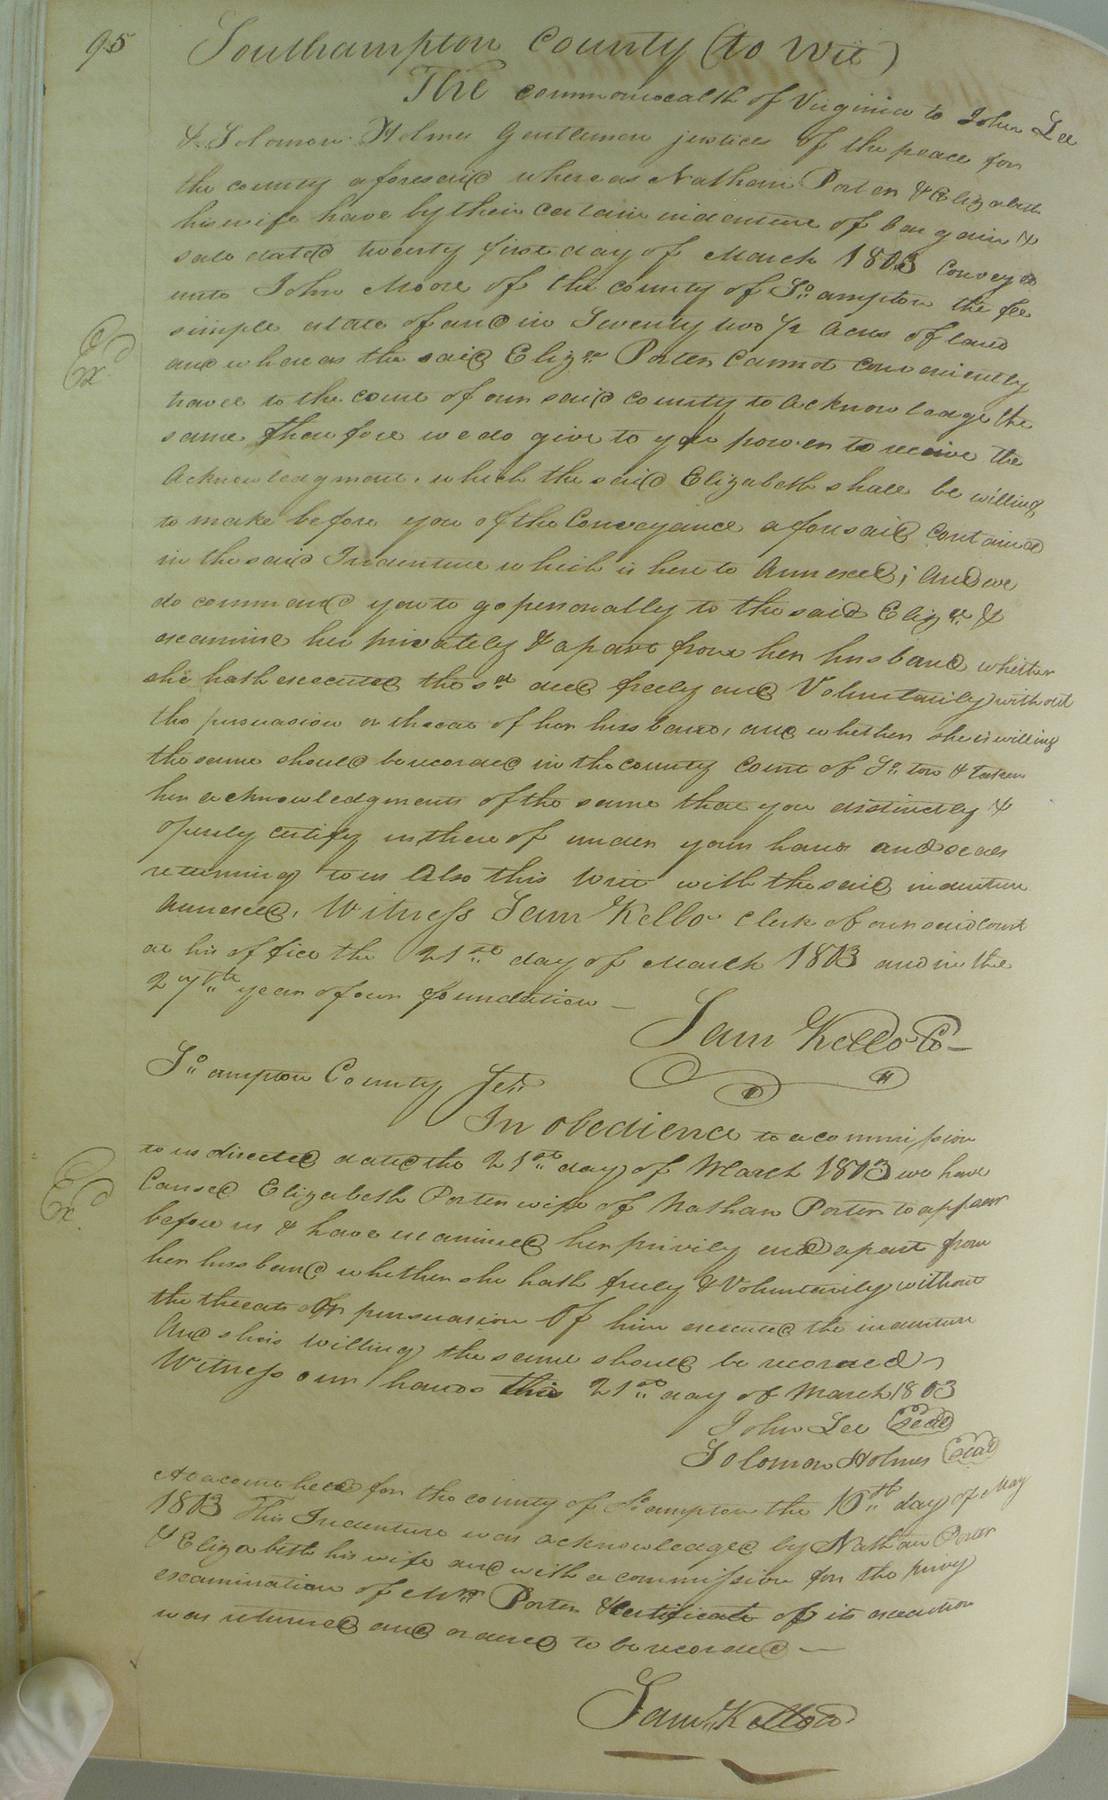 95
Southampton County (to Wit)
The commonwealth of Virginia to John Lee
& Solomon Holmes Gentlemen justices of the peace for
the county aforesaid whereas Nathan Porter & Elizabeth
his wife have by their certain indenture of bargain &
sale dated twenty first day of March 1803 Convey'd
unto John Moore of the county of So ampton the fee
simple estate of and in Seventy two ½ Acres of land
and whereas the said Elizth Porter Cannot conveniently
travel to the court of our said county to acknowledge the
same therefore we do give to you power to receive the
Acknowledgment, which the said Elizabeth shall be willing
to make before you of the Conveyance aforesaid contained
in the said Indenture which is here to Annexed; and we
do command you to go personally to the said Elizth &
examine her privately & apart from her husband whether
she hath executed the sd deed freely and Voluntarily without
the persuasion or threat of her husband, and whether she is willing
the same should be recorded in the county Court of So ton & taken
her acknowledgments of the same that you distinctly &
openly certify us thereof under your hands and seals
returning to us Also this Writ with the said indenture
Annexed, Witness Sam Kello Clerk of our said Court
at his office the 21st day of March 1803 and in the
27th year of our foundation
Sam Kello C
So ampton County Sct
In obedience to a commission
to us directed dated the 21st day of March 1803 we have
Caused Elizabeth Porter wife of Nathan Porter to appear
before us & have examined her privily and apart from
her husband whether she hath freely & Voluntarily without
the threats or persuasion Of him executed the indenture
And she is willing the same should be recorded
Witness our hands this 21st day of March 1803
John Lee Seal
Solomon Holmes Seal
At a court held for the county of So ampton the 16th day of May
1803 This Indenture was acknowledged by Nathan Porter
& Elizabeth his wife and with a commission for the privy
examination of Mrs Porter & certificate of its execution
was returned and ordered to be recorded
Sam Kello C
Exd
Exd